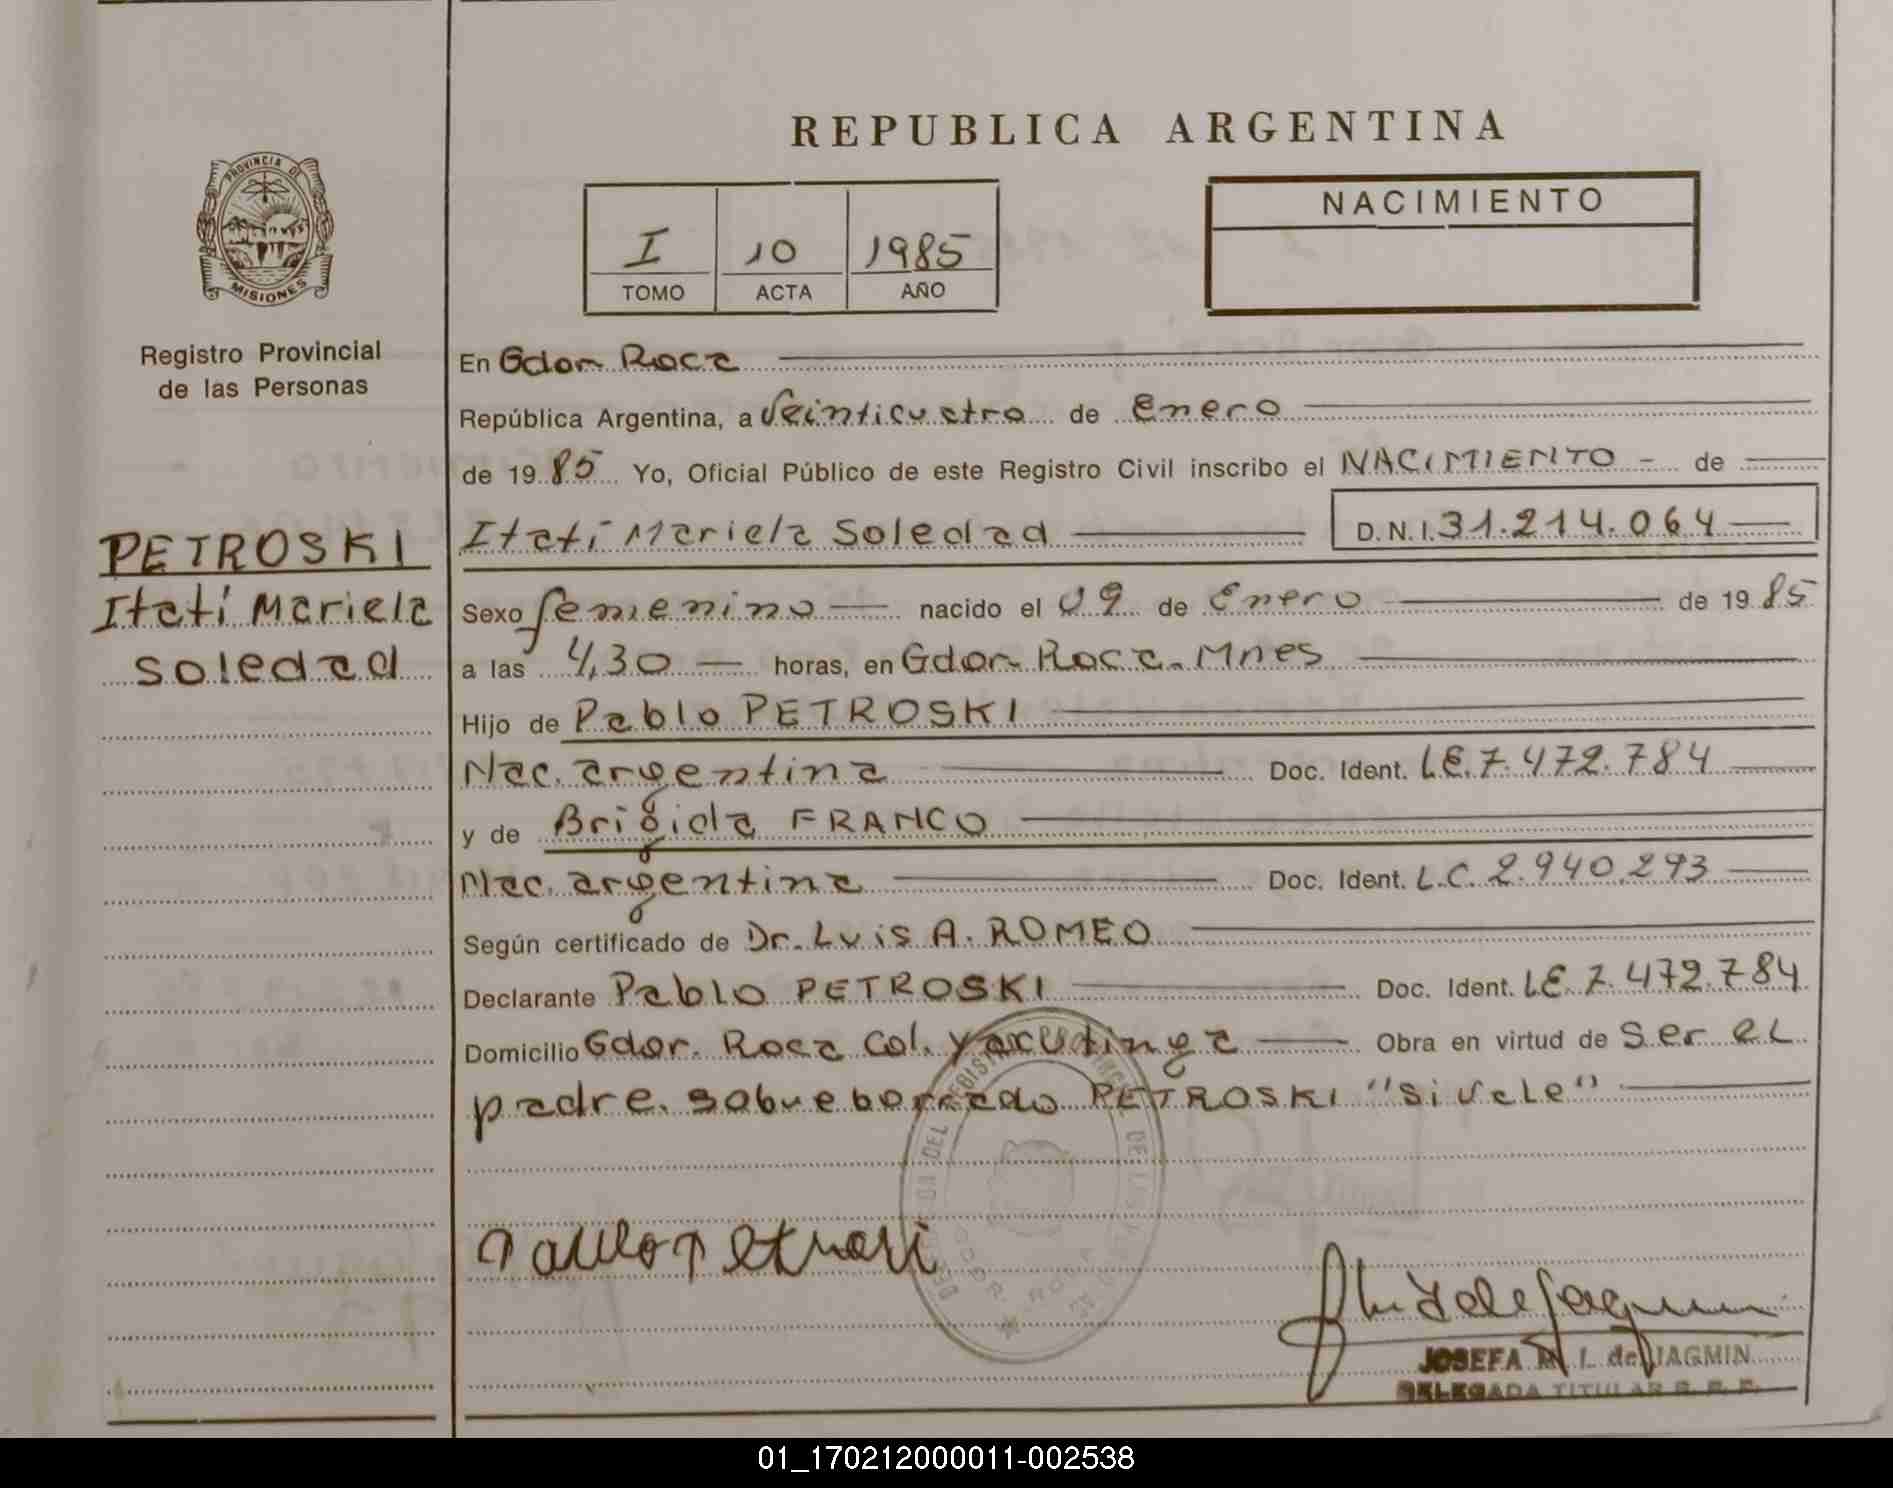 REPUBLICA ARGENTINA
PROVINCIA DE
MISIONES
Registro Provincial
de las Personas
I 10 1985
TOMO ACTA AÑO
NACIMIENTO
PETROSKI
Itatí Mariela
Soledad
En Gdor Roca
República Argentina, a Veinticuatro de Enero
de 1985 Yo, Oficial Público de este Registro Civil inscribo el NACIMIENTO - de
Itatí Mariela Soledad D.N.I. 31.214.064
Sexo femenino nacido el 09 de Enero de 1985
a las 4,30 horas, en Gdor. Roca. Mnes
Hijo de Pablo PETROSKI
Nac. argentina Doc. Ident. L.E. 7.472.784
y de Brígida FRANCO
Nac. argentina Doc. Ident. L.C. 2.940.293
Según certificado de Dr. Luis A. ROMEO
Declarante Pablo PETROSKI Doc. Ident. L.E. 7.472.784
Domicilio Gdor. Roca Col. Yacutinga Obra en virtud de Ser el
padre. sobreborrado PETROSKI "Si vale"
JOSEFA de JAGMIN
DELEGADA TITULAR
01_170212000011-002538